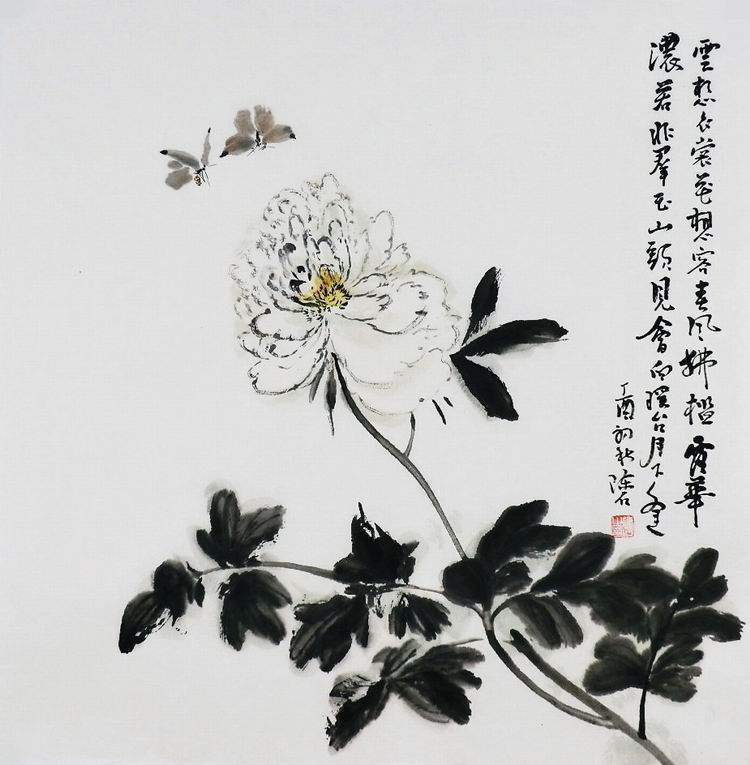 雲想衣裳花想容春風拂檻露華
濃若非羣玉山頭見會向瑤台月下逢
丁酉初秋陈石